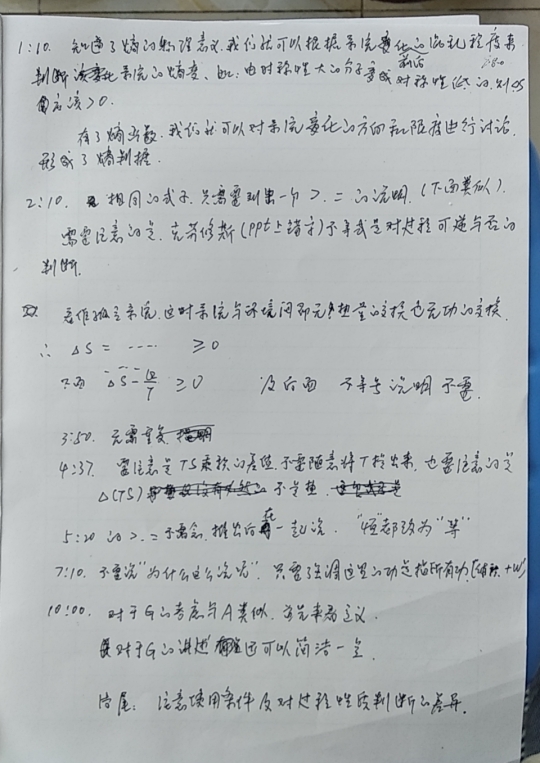 1:10. 知道了熵的物理意义,我们就可以根据系统变化的混乱程度来
判断该变化系统的熵变、如:由对称性大的分子变成对称性低的,则ΔS
应该>0.
有了熵函数,我们就可以对系统变化的方向和限度进行讨论,
形成了熵判据.
2:10. 相同的式子,只需要列出一个 >. = 的说明.(下面类似).
需要注意的是,克劳修斯(PPt上错字)不等式是对过程可逆与否的
判断.
若作孤立系统,这时系统与环境间即无热量的交换也无功的交换.
∴ ΔS = ····· ≥0
ΔS - Q/T ≥0 及后面 不等号说明不要.
3:50. 无需重复
4:37. 要注意是TS乘积的差值,不要随意将T提出来,也要注意的是
Δ(TS) 不是热.
5:20 的 >. = 不需念,推出后在一起说. "恒"都改为"等"
7:10. 不要说"为什么这么说呢",只需强调这里的功是指所有功,(体积+W')
10:00. 对于G的考虑与A类似,首先来看定义.
对于G的讲述还可以简洁一些.
结尾: 注意使用条件及对过程性质判断的差异.